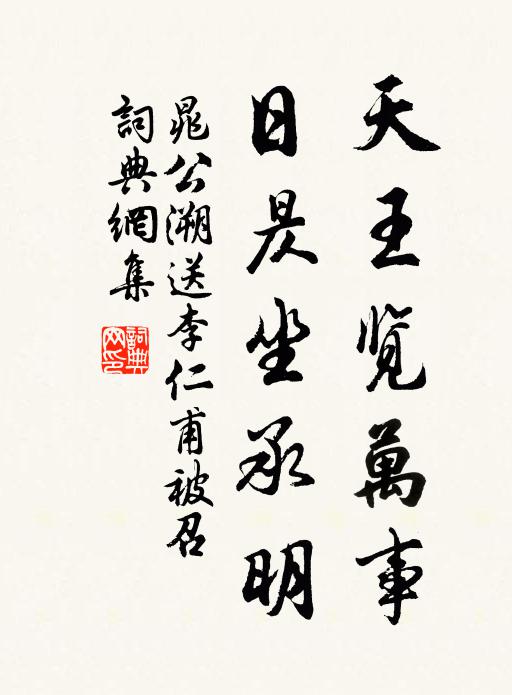 天王览萬事
日昃坐承明
晁公溯送李仁甫被召
詞典網集
詞典网印